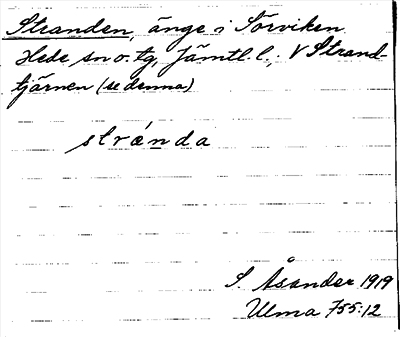 Stranden, änge i Sörviken
Hede sn o. tg, Jämtl. l.; V Strand-
tjärnen (se denna)
strända
S. Åsander 1919
Ulma 755:12